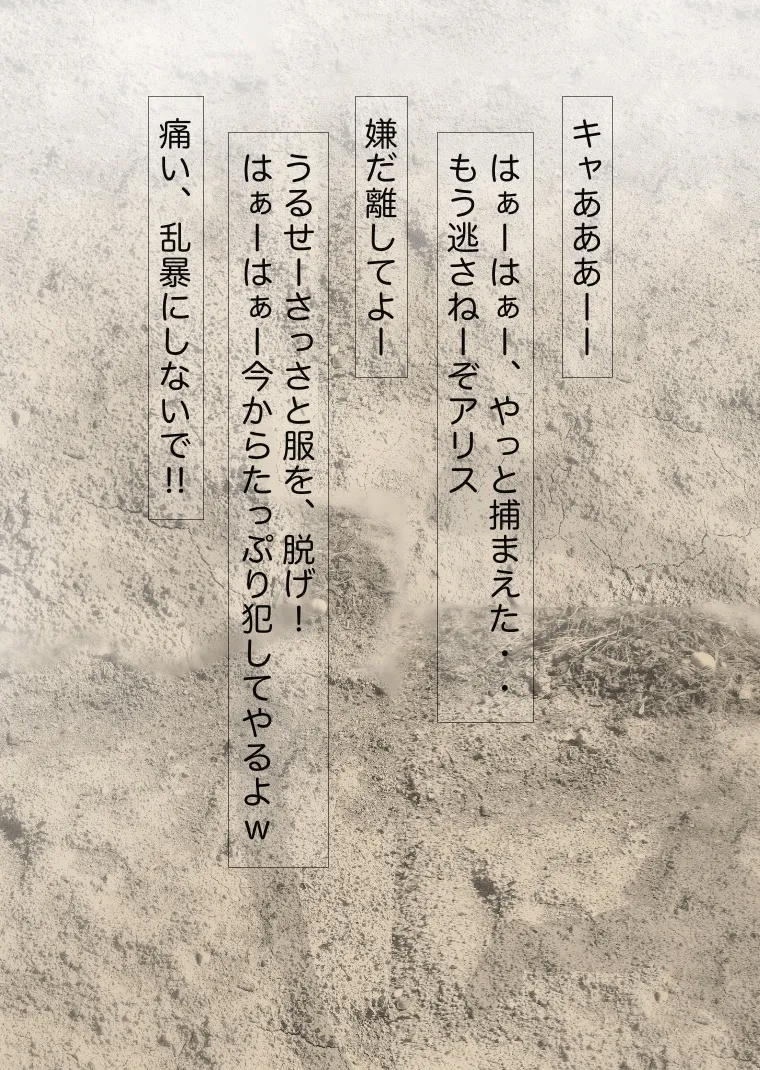 キャあああーー
はぁーはぁー、やっと捕まえた・・
もう逃さねーぞアリス
嫌だ離してよー
うるせーさっさと服を、脱げ！
はぁーはぁー今からたっぷり犯してやるよｗ
痛い、乱暴にしないで!!